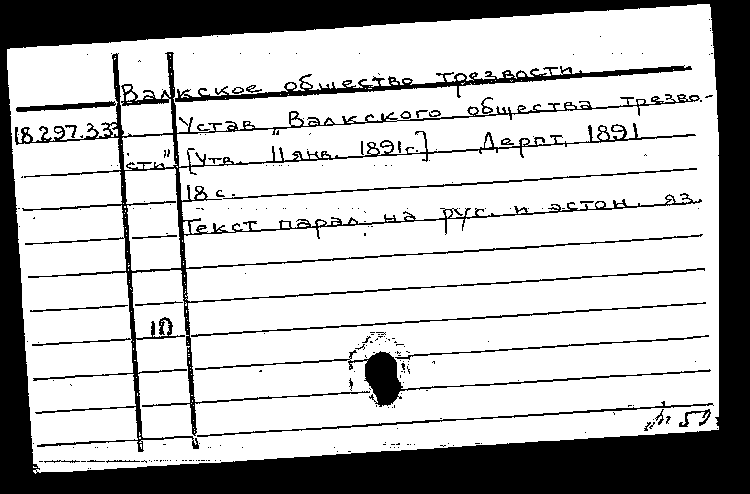 Валкское общество трезвости.
18.297.333. Устав „Валкского общества трезво-
сти" [Утв. 11 янв. 1891 г.] Дерпт, 1891
18 с.
Текст парал. на рус. и эстон. яз.
10
59